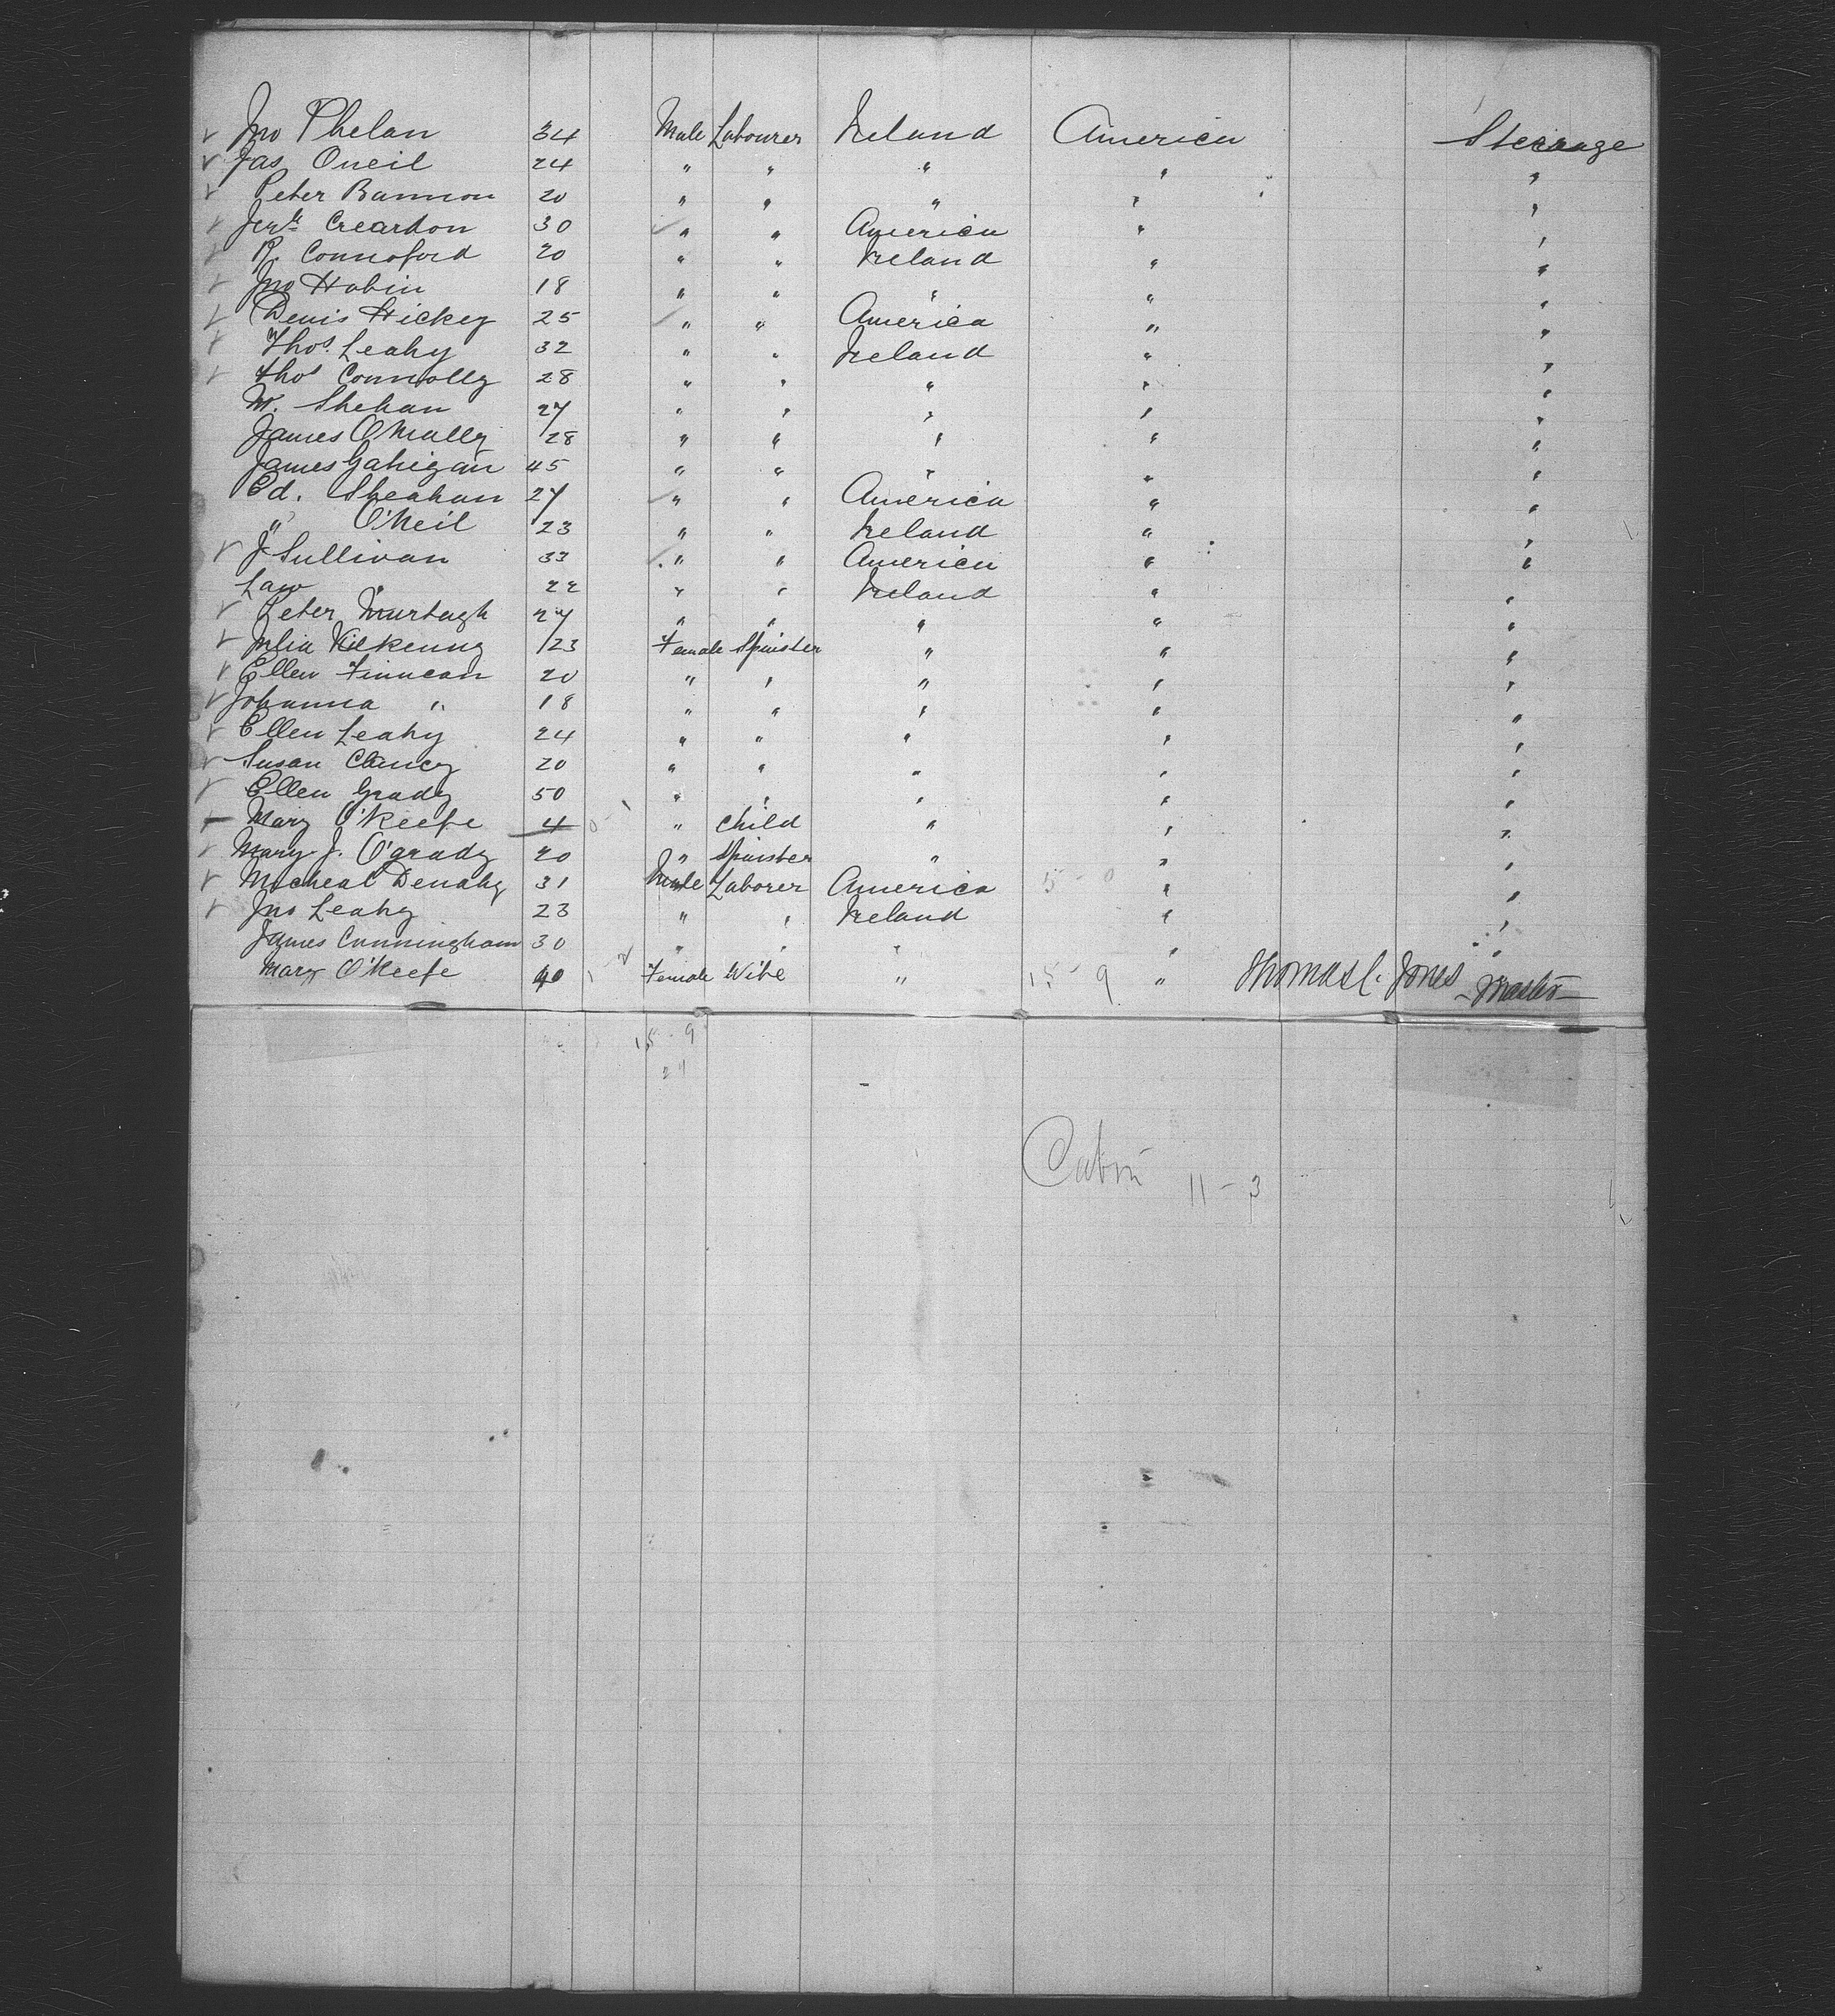 Jno Phelan 34 Male Labourer Ireland America Steerage
Jas Oneil 24 " " " " "
Peter Bannon 20 " " " " "
Jerh Creardon 30 " " America " "
R. Connoford 20 " " Ireland " "
Jno Hobin 18 " " " " "
Denis Hickey 25 " " America " "
Thos. Leahy 32 " " Ireland " "
Thos Connolly 28 " " " " "
M. Shehan 27 " " " " "
James O'Mally 28 " " " " "
James Gahigan 45 " " " " "
Ed. Sheahan 27 " " America " "
" O'Neil 23 " " Ireland " "
J Sullivan 33 " " America " "
Law " 22 " " Ireland " "
Peter Murtagh 27 " " " " "
Julia Kilkenny 23 Female Spinster " " "
Ellen Finucan 20 " " " " "
Johanna " 18 " " " " "
Ellen Leahy 24 " " " " "
Susan Clancy 20 " " " " "
Ellen Grady 50 " " " " "
Mary O'Keefe 4 " Child " " "
Mary J. O'grady 20 " Spinster " " "
Micheal Denahy 31 Male Laborer America 5-0 " "
Jno Leahy 23 " " Ireland " "
James Cunningham 30 " " " " "
Mary O'Keefe 40 Female Wife " 15-9 " Thomas C. Jones - Master -
15-9
24
Cabin 11-3